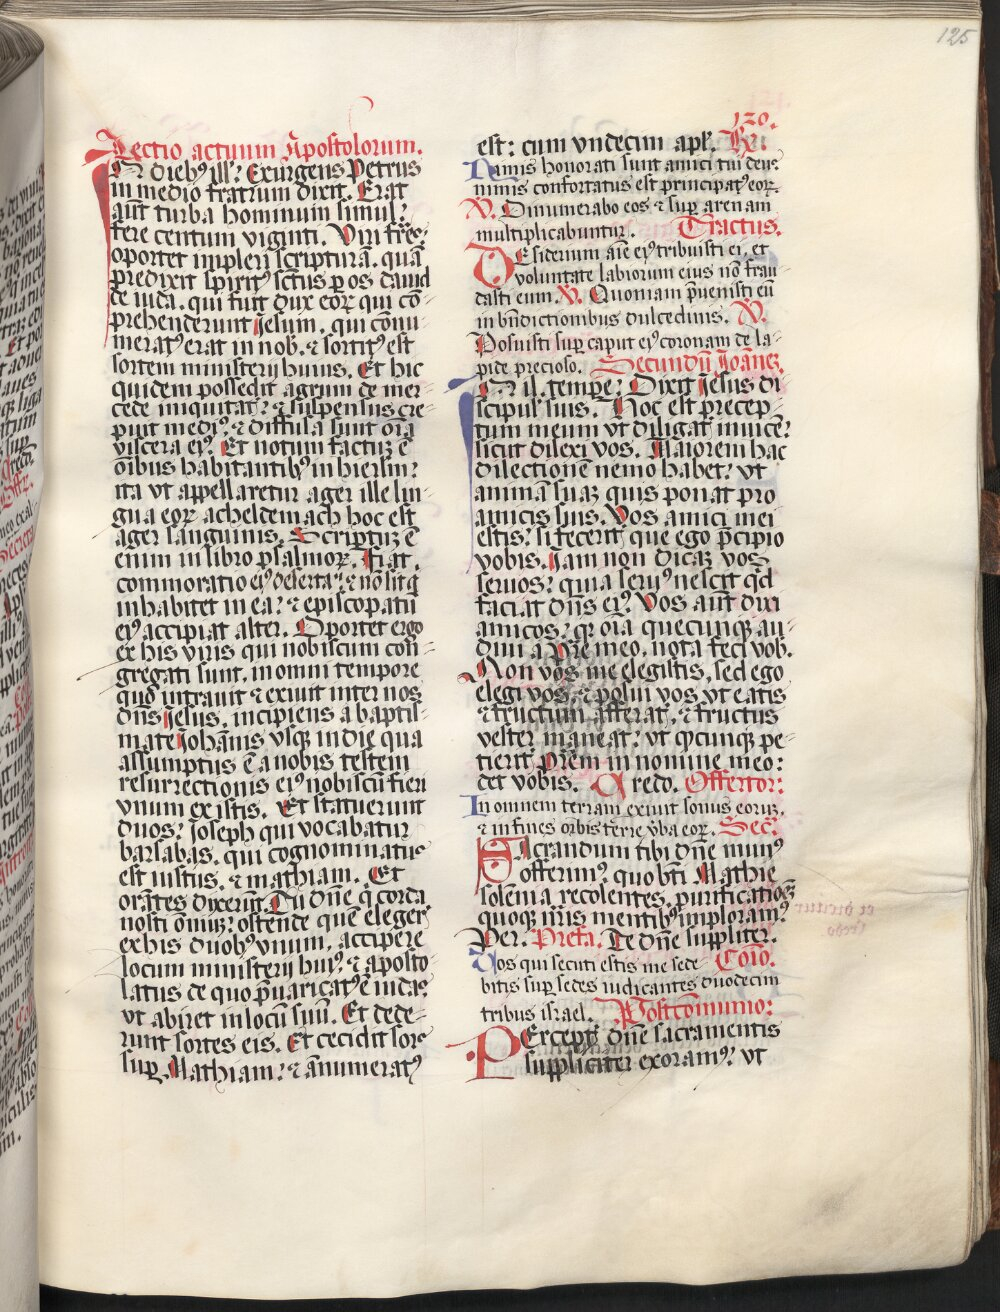 125
120.
Lectio actuum Apostolorum.
In dieb9 ill': Exurgens Petrus
in medio fratrum dixit. Erat
aūt turba hominum simul:
fere centum viginti. Viri fr̄es
oportet impleri scripturā. quā
predixit spirit9 sctūs ꝑ os dauid
de iuda. qui fuit dux eoꝝ qui cō-
prehenderunt Jesum. qui cōnu-
merat9 erat in nob. ⁊ sortit9 est
sortem ministerij huius. Et hic
quidem possedit agrum de mer-
cede iniquitat': ⁊ suspensus cre-
puit medi9: ⁊ diffusa sunt oīa
viscera ei9. Et notum factuꝫ ē
oībus habitantib9 in hierlm:
ita vt appellaretur ager ille lin-
gua eoꝝ acheldemach hoc est
ager sanguinis. Scriptuꝫ ē
enim in libro psalmoꝝ. Fiat
commoratio ei9 deserta: ⁊ nō sit q̄
inhabitet in ea: ⁊ episcopatū
ei9 accipiat alter. Oportet ergo
ex his viris qui nobiscum con-
gregati sunt. in omni tempore
quo intrauit ⁊ exiuit inter nos
dn̄s Jesus. incipiens a baptis-
mate Johānis vsqꝫ in die qua
assumptus ē a nobis testem
resurrectionis ei9 nobiscū fieri
vnum ex istis. Et statuerunt
duos: Joseph qui vocabatur
barsabas. qui cognominatus
est iustus. ⁊ mathiam. Et
orātes dixerūt. Tu dn̄e q̄ corda
nosti omiuꝫ: ostende quē eleger'
ex his duob9 vnum. accipere
locum ministerij hui9: ⁊ aposto-
latus de quo p̄uaricat9 ē iudas
vt abiret in locū suū. Et dede-
runt sortes eis. Et cecidit sors
suꝑ Mathiam: ⁊ ānumerat9
est: cum vndecim apl'. Gr.
Nimis honorati sunt amici tui deus
nimis confortatus est principat9 eoꝝ
V. Dinumerabo eos ⁊ suꝑ arenam
multiplicabuntur. Tractus.
Desiderium aīe ei9 tribuisti ei. et
voluntate labiorum eius nō frau-
dasti eum. V. Quoniam p̄uenisti eū
in bn̄dictionibus dulcedinis. V.
Posuisti suꝑ caput ei9 coronam de la-
pide precioso. Secundū Joāneꝫ.
In il. tempe: Dixit Jesus di
scipul' suis. Hoc est precep-
tum meum vt diligat' inuicē:
sicut dilexi vos. Maiorem hac
dilectionē nemo habet: vt
animā suaꝫ quis ponat pro
amicis suis. Vos amici mei
estis: si fecerit' que ego p̄cipio
vobis. Jam non dicaꝫ vos
seruos: quia seru9 nescit q̄d
faciat dn̄s ei9: Vos aūt dixi
amicos: qꝛ oīa quecunqꝫ au-
diui a pr̄e meo. nota feci vob.
Non vos me elegistis. sed ego
elegi vos: ⁊ posui vos vt eatis
⁊ fructum afferat'. ⁊ fructus
vester maneat: vt qcunqꝫ pe-
tierit' pr̄em in nomine meo:
det vobis. Credo. Offertor:
In omnem terram exiuit sonus eoruꝫ.
⁊ in fines orbis terre ꝟba eoꝝ. Secr'.
Sacrandum tibi dn̄e mun9
offerim9: quo bt̄i Mathie
solēnia recolentes. purificationeꝫ
quoqꝫ nr̄is mentib9 imploram9.
Per. Prefa. Te dn̄e suppliter.
Vos qui secuti estis me sede Com̄o.
bitis suꝑ sedes iudicantes duodecim
tribus israel. Postcōmunio:
Percept' dn̄e sacramentis
suppliciter exoram9: vt